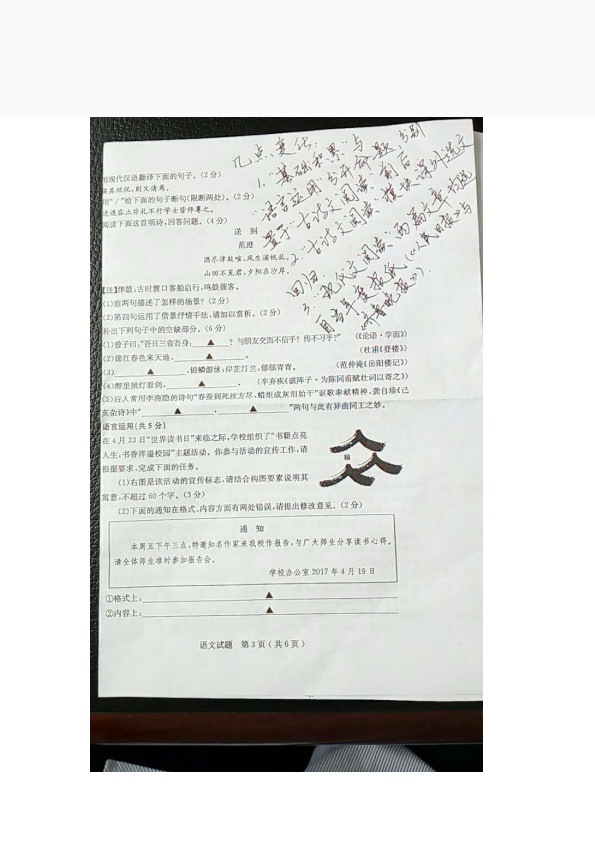 几点变化:
1. "基础积累"与
语言运用分开命题,分别
置于"古诗文阅读"前后
2. "古诗文阅读"模块课外选文
回归
3. "现代文阅读"两篇文章均选
自当年度报纸(《人民日报》与
《齐鲁晚报》).
用现代汉语翻译下面的句子。(2分)
屡其欣悦,则又请焉。
用"/"给下面的句子断句(限断两处)。(2分)
进退容止非礼不行学士皆师尊之。
阅读下面这首明诗,回答问题。(4分)
送 别
范澄
酒尽津鼓喧,风生浦帆乱。
山回不见君,夕阳在沙岸。
【注】津鼓:古时渡口客船启行,鸣鼓催客。
(1)前两句描述了怎样的场景?(2分)
(2)第四句运用了借景抒情手法,请加以赏析。(2分)
补出下列句子中的空缺部分。(6分)
(1)曾子曰:"吾日三省吾身:▲?与朋友交而不信乎?传不习乎?" (《论语·学而》)
(2)锦江春色来天地,▲。 (杜甫《登楼》)
(3)▲,锦鳞游泳;岸芷汀兰,郁郁青青。 (范仲淹《岳阳楼记》)
(4)醉里挑灯看剑,▲。 (辛弃疾《破阵子·为陈同甫赋壮词以寄之》)
(5)后人常用李商隐的诗句"春蚕到死丝方尽,蜡炬成灰泪始干"讴歌奉献精神,龚自珍《己
亥杂诗》中"▲,▲"两句与此有异曲同工之妙。
语言运用(共5分)
在4月23日"世界读书日"来临之际,学校组织了"书籍点亮
人生,书香洋溢校园"主题活动。你参与活动的宣传工作,请
根据要求,完成下面的任务。
(1)右图是该活动的宣传标志,请结合构图要素说明其
寓意,不超过60个字。(3分)
(2)下面的通知在格式、内容方面有两处错误,请提出修改意见。(2分)
通 知
本周五下午三点,特邀知名作家来我校作报告,与广大师生分享读书心得。
请全体师生准时参加报告会。
学校办公室 2017年4月19日
①格式上:▲
②内容上:▲
语文试题 第3页(共6页)